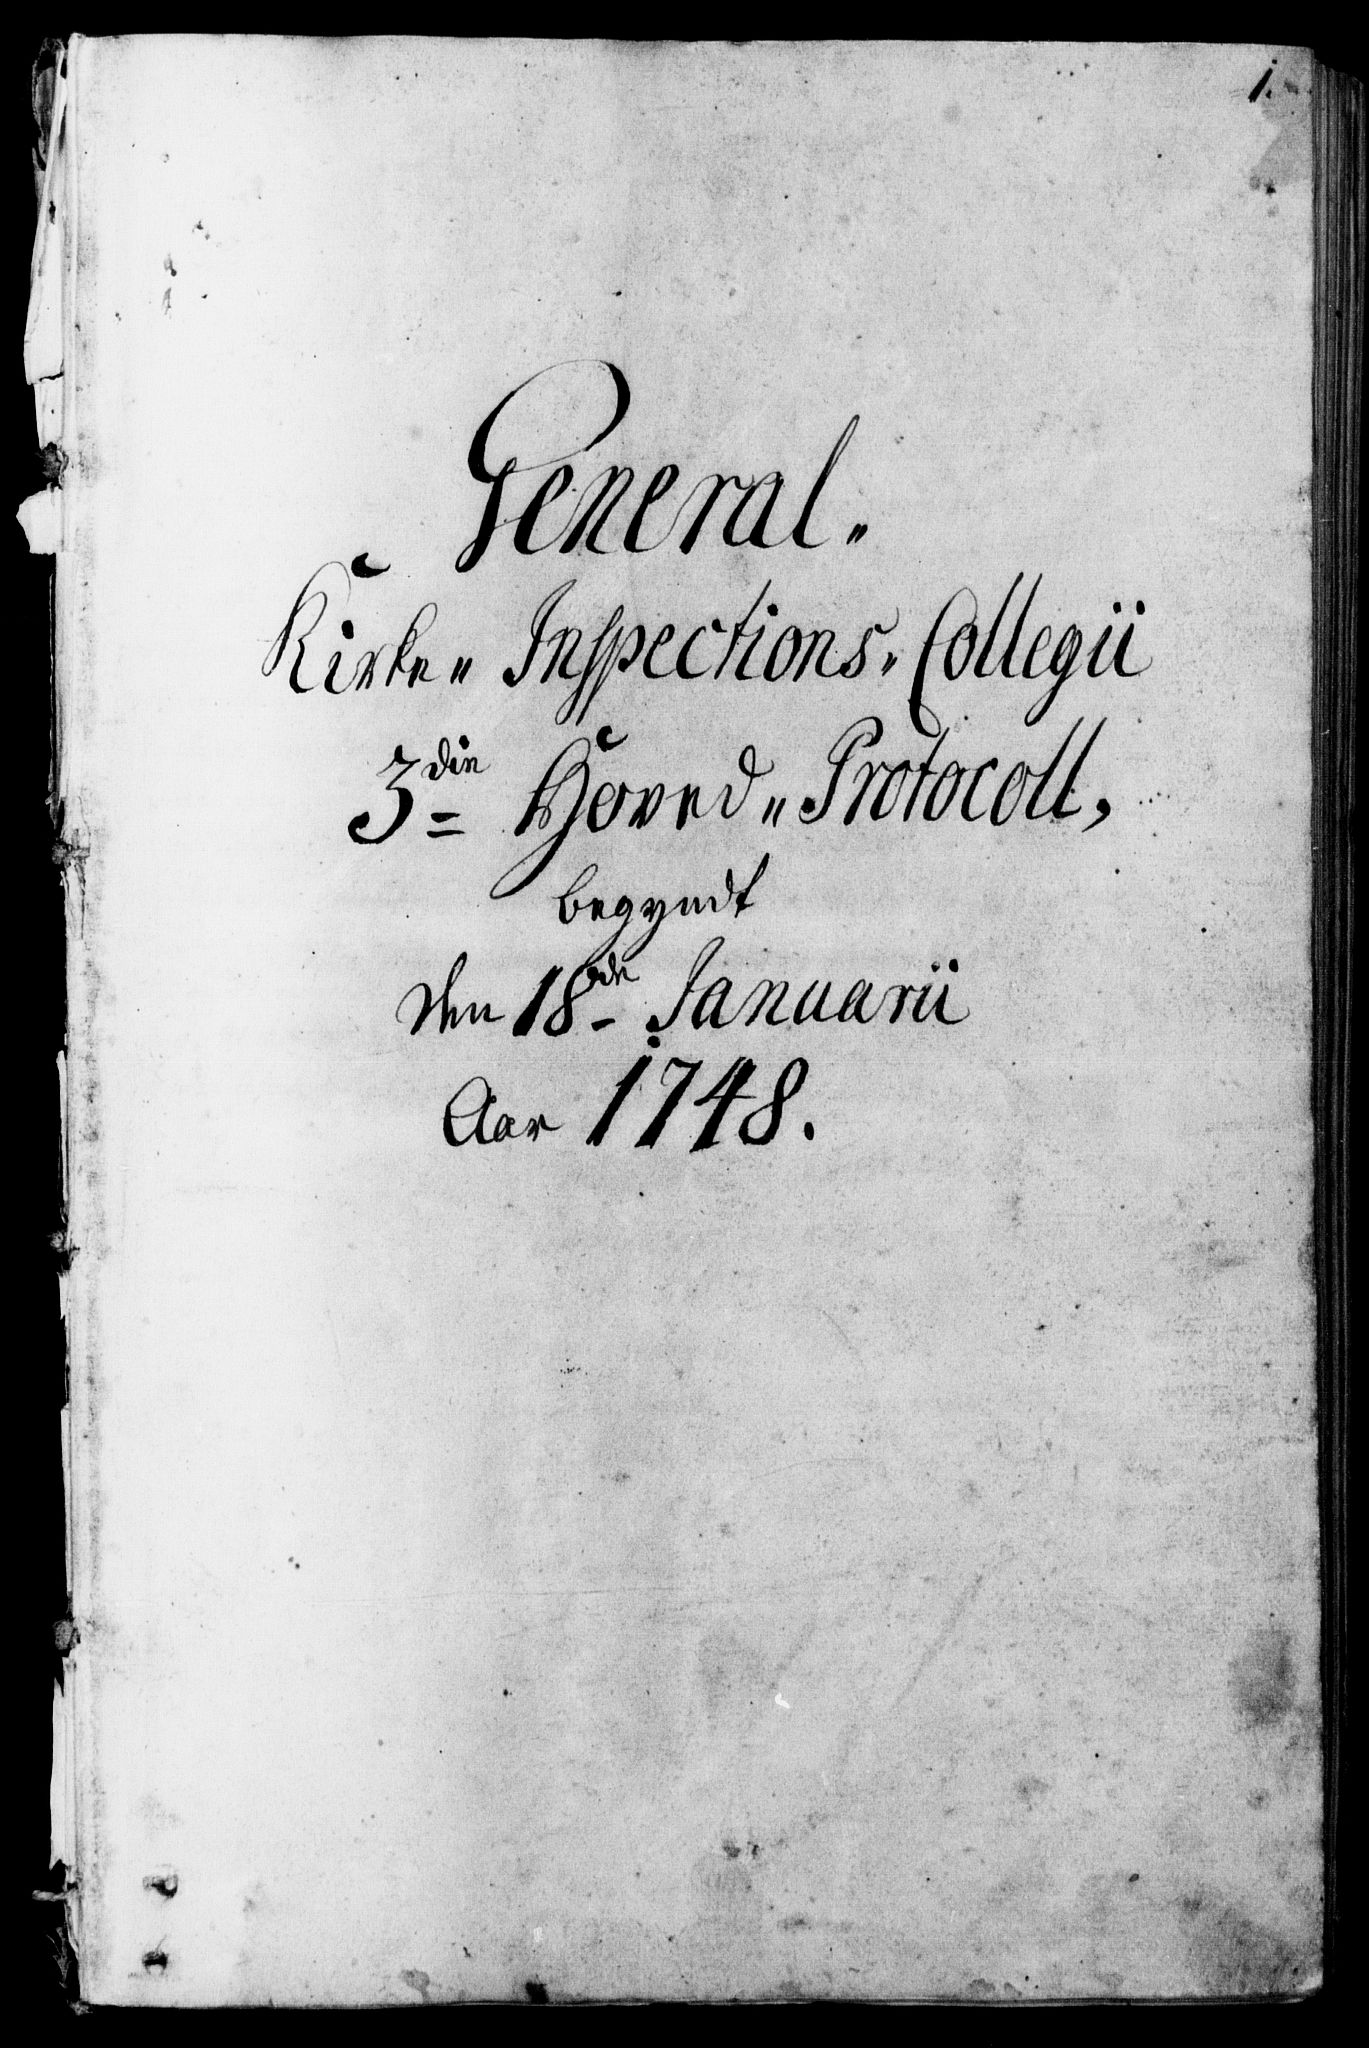 1.
General„
Kirke„ Inspections„ Collegii
3die Hoved„ Protocoll,
begyndt
den 18de Januarii
Aar 1748.